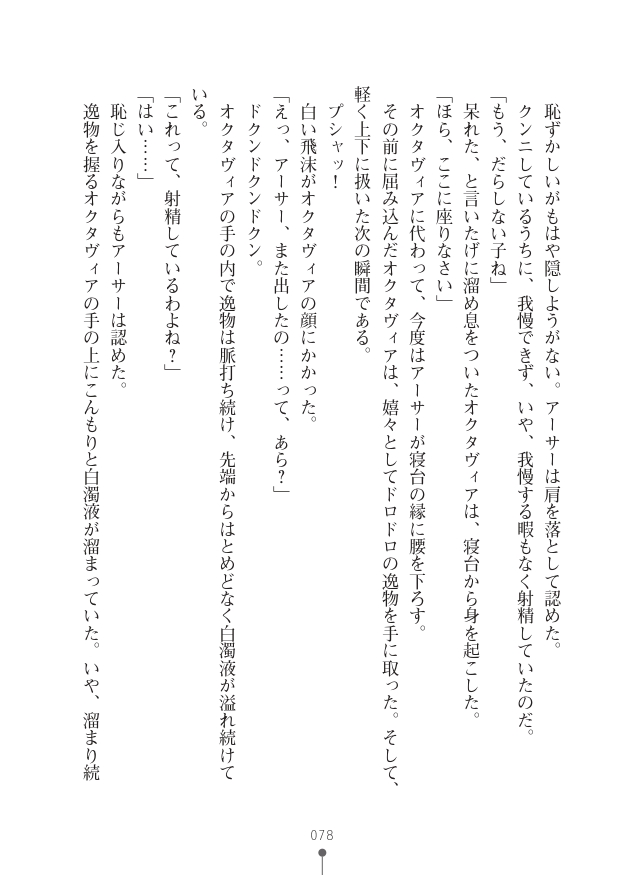 恥ずかしいがもはや隠しようがない。アーサーは肩を落として認めた。
クンニしているうちに、我慢できず、いや、我慢する暇もなく射精していたのだ。
「もう、だらしない子ね」
呆れた、と言いたげに溜め息をついたオクタヴィアは、寝台から身を起こした。
「ほら、ここに座りなさい」
オクタヴィアに代わって、今度はアーサーが寝台の縁に腰を下ろす。
その前に屈み込んだオクタヴィアは、嬉々としてドロドロの逸物を手に取った。そして、
軽く上下に扱いた次の瞬間である。
プシャッ！
白い飛沫がオクタヴィアの顔にかかった。
「えっ、アーサー、また出したの……って、あら？」
ドクンドクンドクン。
オクタヴィアの手の内で逸物は脈打ち続け、先端からはとめどなく白濁液が溢れ続けて
いる。
「これって、射精しているわよね？」
「はい……」
恥じ入りながらもアーサーは認めた。
逸物を握るオクタヴィアの手の上にこんもりと白濁液が溜まっていた。いや、溜まり続
078